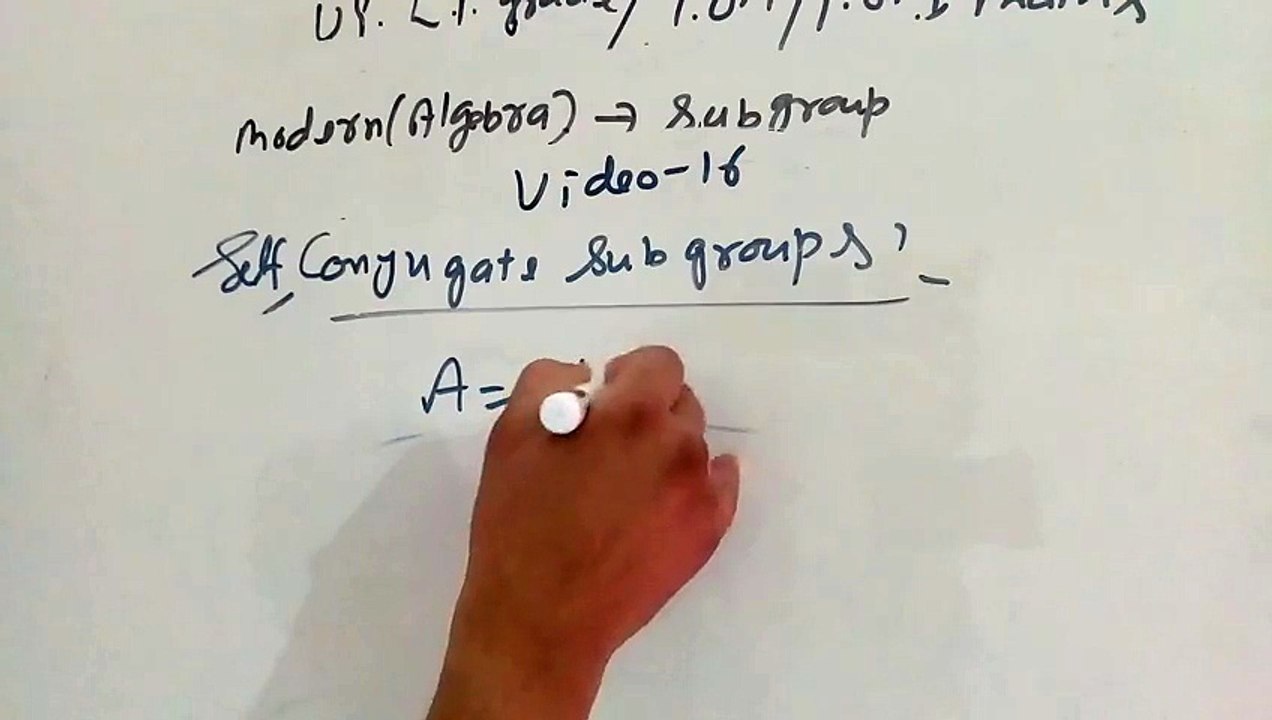 UP. L.T. grade/
modern(Algebra) → subgroup
Video-16
Self Conjugate subgroups
A=